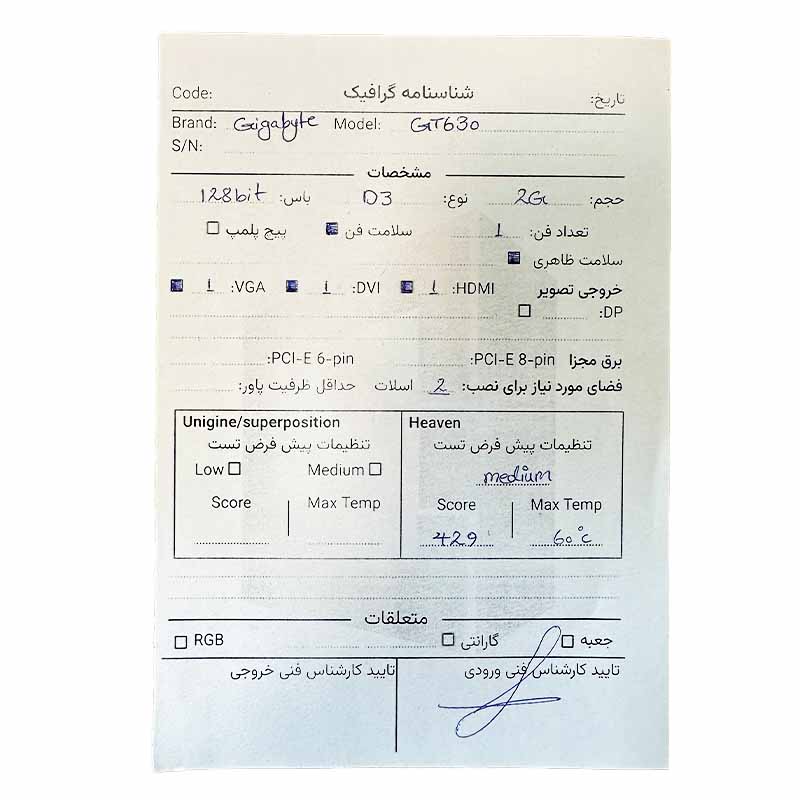 تاریخ: شناسنامه گرافیک Code:
Brand: Gigabyte Model: GT630
S/N:
مشخصات
حجم: 2G نوع: D3 باس: 128bit
تعداد فن: 1 سلامت فن پیچ پلمپ
سلامت ظاهری
خروجی تصویر HDMI: 1 DVI: 1 VGA: 1
DP:
برق مجزا PCI-E 8-pin: PCI-E 6-pin:
فضای مورد نیاز برای نصب: 2 اسلات حداقل ظرفیت پاور:
Unigine/superposition
تنظیمات پیش فرض تست
Low Medium
Score Max Temp
Heaven
تنظیمات پیش فرض تست
medium
Score Max Temp
429 60°c
متعلقات
جعبه گارانتی RGB
تایید کارشناس فنی ورودی
تایید کارشناس فنی خروجی